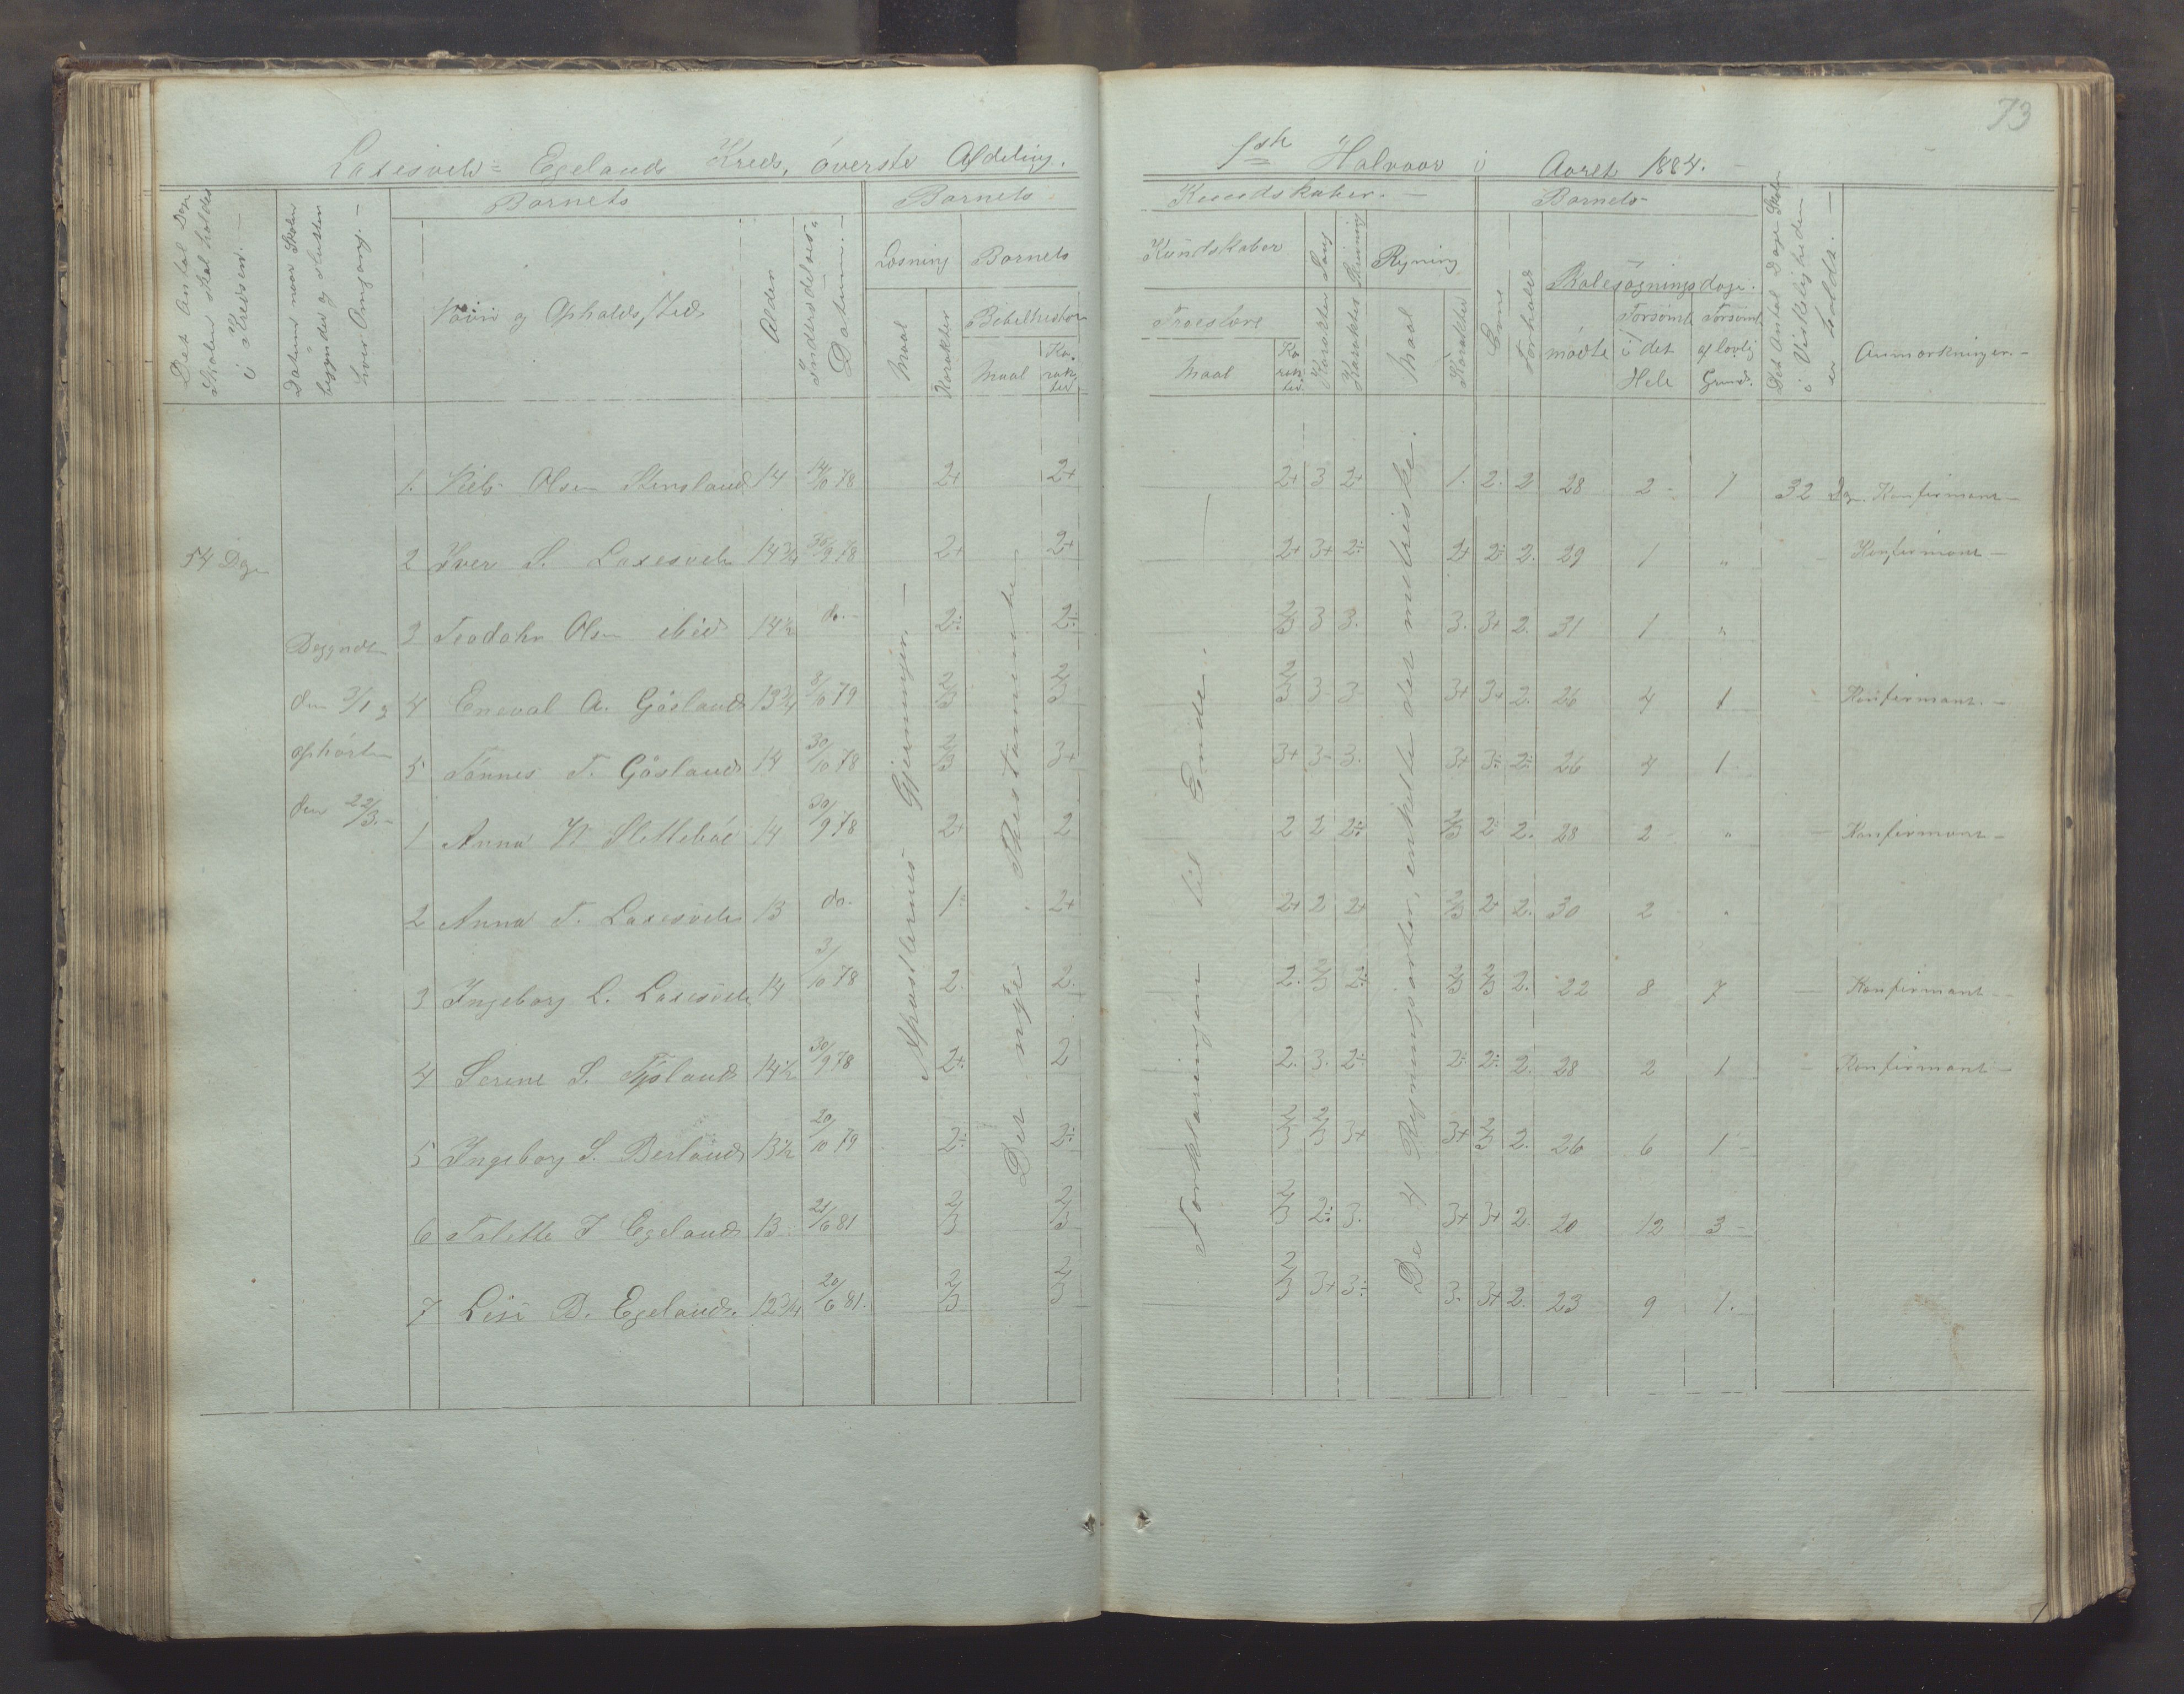 73
Laxesvele- Egelands Kreds, øverste Afdeling.
1ste Halvaar i Aaret 1884.
Det Antal Dage Skolen skal holdes i Kredsen.
Datum naar Skolen begynder og slutter hver Omgang.
Barnets
Navn og Opholdssted
Alder
Indtrædelses-Datum.
Barnets
Læsning
Maal
Karakter
Barnets
Bibelhistorie
Maal
Karakter
Kundskaber.
Kundskaber
Troeslære
Maal
Karakter
Karakter Sang
Karakter Skrivning
Regning
Maal
Karakter
Barnets
Evne
Forhold
Skolesøgningsdage.
mødte
Forsømte i det Hele
Forsømt af lovlig Grund.
Det Antal Dage Skolen i Virkeligheden er holdt.
Anmærkninger.
54 Dage
Begyndte
den 3/1 og
ophørte
den 22/3.
Apostlernes Gjerninger.
Det nye Testamente
Forklaringen til Ende.
De 4 Regningsarter, enkelte det metriske.
1. Niels Olsen Stensland 14 14/10 78 2+ 2+ 2+ 3 2+ 1. 2. 2 28 2 1 32 Dage. Konfirmant
2 Iver S. Laxesvele 14 3/4 30/9 78 2+ 2+ 2+ 3+ 2÷ 2+ 2÷ 2. 29 1 " Konfirmant
3 Teodohr Olsen ibid 14 1/2 do. 2÷ 2÷ 2/3 3 3. 3. 3+ 2. 31 1 "
4 Eneval A. Gåsland 13 3/4 8/10 79 2/3 2/3 2/3 3 3 3+ 3+ 2. 26 4 1 Konfirmant.
5 Tønnes T. Gåsland 14 30/10 78 2/3 3+ 3+ 3 3. 3+ 3÷ 2÷ 26 4 1
1 Anna W Slettebøe 14 30/9 78 2+ 2 2 2 2÷ 2/3 2 2. 28 2 " Konfirmant
2 Anna T. Laxesvele 13 do. 1÷ 2+ 2+ 2 2+ 2/3 2+ 2. 30 2 "
3 Ingeborg L. Laxesvele 14 3/10 78 2. 2. 2. 2/3 2÷ 2/3 2/3 2. 22 8 7 Konfirmant
4 Serine S. Tysland 14 1/2 30/9 78 2÷ 2 2. 3. 2÷ 2÷ 2÷ 2. 28 2 1 Konfirmant
5 Ingeborg S. Berland 13 1/2 20/10 79 2÷ 2÷ 2/3 2/3 3+ 3+ 2/3 2. 26 6 1
6 Talette J Egeland 13 21/6 81 2/3 2/3 2/3 2÷ 3. 3+ 3+ 2. 20 12 3
7 Lise B. Egeland. 12 3/4 20/6 81. 2/3 2/3 2/3 3+ 3÷ 3. 3+ 2. 23 9 1.